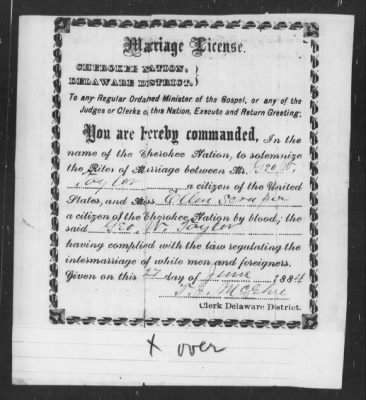 Marriage License.
CHEROKEE NATION, }
DELAWARE DISTRICT. }
To any Regular Ordained Minister of the Gospel, or any of the
Judges or Clerks of this Nation, Execute and Return Greeting:
You are hereby commanded, In the
name of the Cherokee Nation, to solemnize
the Rites of Marriage between Mr. Geo. W.
Taylor a citizen of the United
States, and Miss Ellen Scraper
a citizen of the Cherokee Nation by blood; the
said Geo. W. Taylor
having complied with the law regulating the
intermarriage of white men and foreigners.
Given on this 27 day of June 1884
Clerk Delaware District.
x over